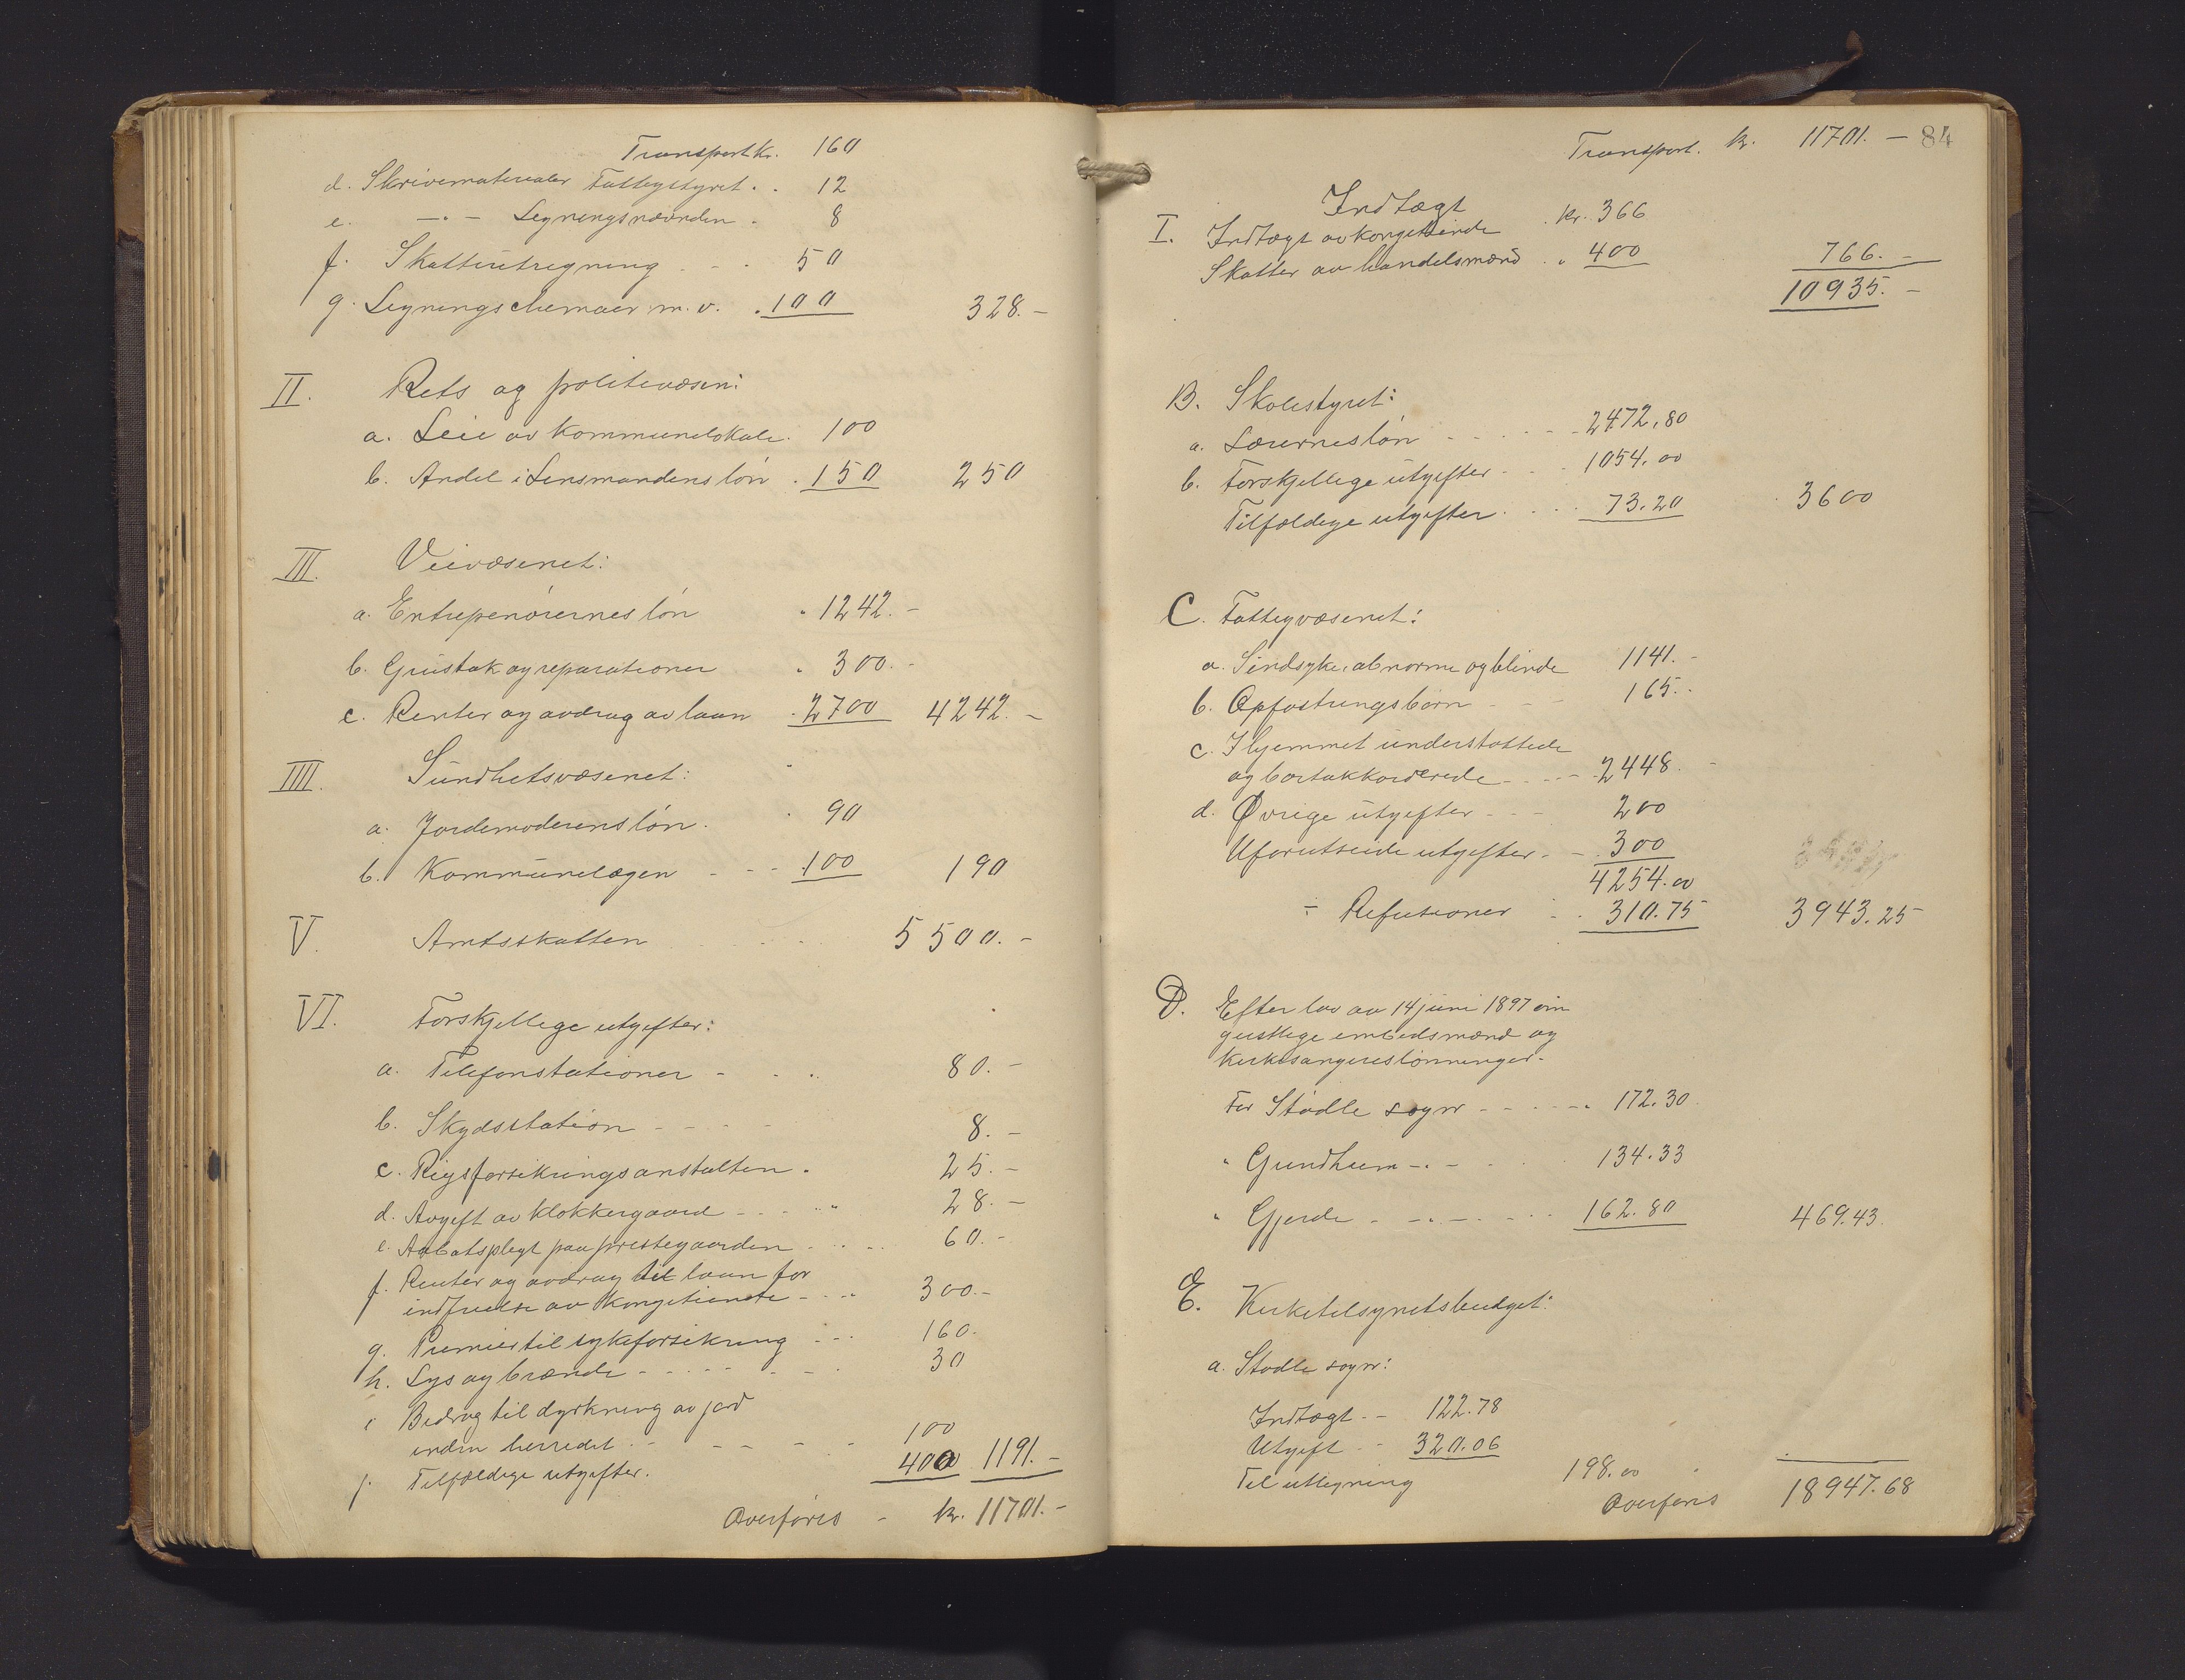 Transport kr. 160
d. Skrivematerialer Fattigstyret . . 12
e. —"— Ligningsnævnden . 8
f. Skatteutregning . . . 50
g. Ligningschemaer m. v. . 100 328.-
II. Rets og politivæsen:
a. Leie av Kommunelokale. 100
b. Andel i Lensmandens løn . 150 250
III. Veivæsenet:
a. Entrepenørernes løn " 1242.-
b. Grustak og reparationer " 300.-
c. Renter og avdrag av laan . 2700 4242.-
IIII. Sundhetsvæsenet:
a. Jordemoderens løn . " 90
b. Kommunelægen - - - 100 190
V. Amtsskatten 5500.-
VI. Forskjellige utgifter:
a. Telefonstationer - - .. 80.-
b. Skydsstation - - - - - 8.-
c. Rigsforsikringsanstalten . 25.-
d. Avgift av Klokkergaard - - - .. 28.-
e. Aabotsplegt paa prestegaarden . .. .. 60.-
f. Renter og avdrag til laan for
indfrielse av Kongetiende - - .. 300.-
g. Premier til sykeforsikring . . . 160.
h. Lys og brænde - - - - - - - 30
i Bidrag til dyrkning av jord
inden herredet . - - - - - 100
j. Tilfældige utgifter. 400 1191.-
Overføres - kr. 11701.-
Transport. kr. 11701. - 84
Indtægt
I. Indtægt av kongetiende . kr. 366
Skatter av handelsmænd . " 400 766.-
10935.-
B. Skolestyret:
a. Lærernes løn - - - - - 2472,80
b. Forskjellige utgifter - - - 1054.00
Tilfældige utgifter . . . . 73.20 3600
C. Fattigvæsenet:
a. Sindsyke, abnorme og blinde 1141.-
b. Opfostringsbørn - - - 165.-
c. I hjemmet understøttede
og bortakkorderede - - - - 2448.-
d. Øvrige utgifter - - - 200
Uforutseede utgifter - - 300
4254.00
÷ Refusioner - . 310.75 3943.25
D. Efter lov av 14 juni 1897 om
gestlige embedsmænd og
Kirkesangereslønninger.
For Stødle sogn - - - - - 172.30
" Grindheim -"- - . . 134.33
" Gjerde . -"- - - . . 162.80 469.43.
E. Kirketilsynetsbudget:
a. Stødle sogn:
Indtægt. - 122.78
Utgift - - 320.06
Til utligning 198.00
Overføres 18947.68